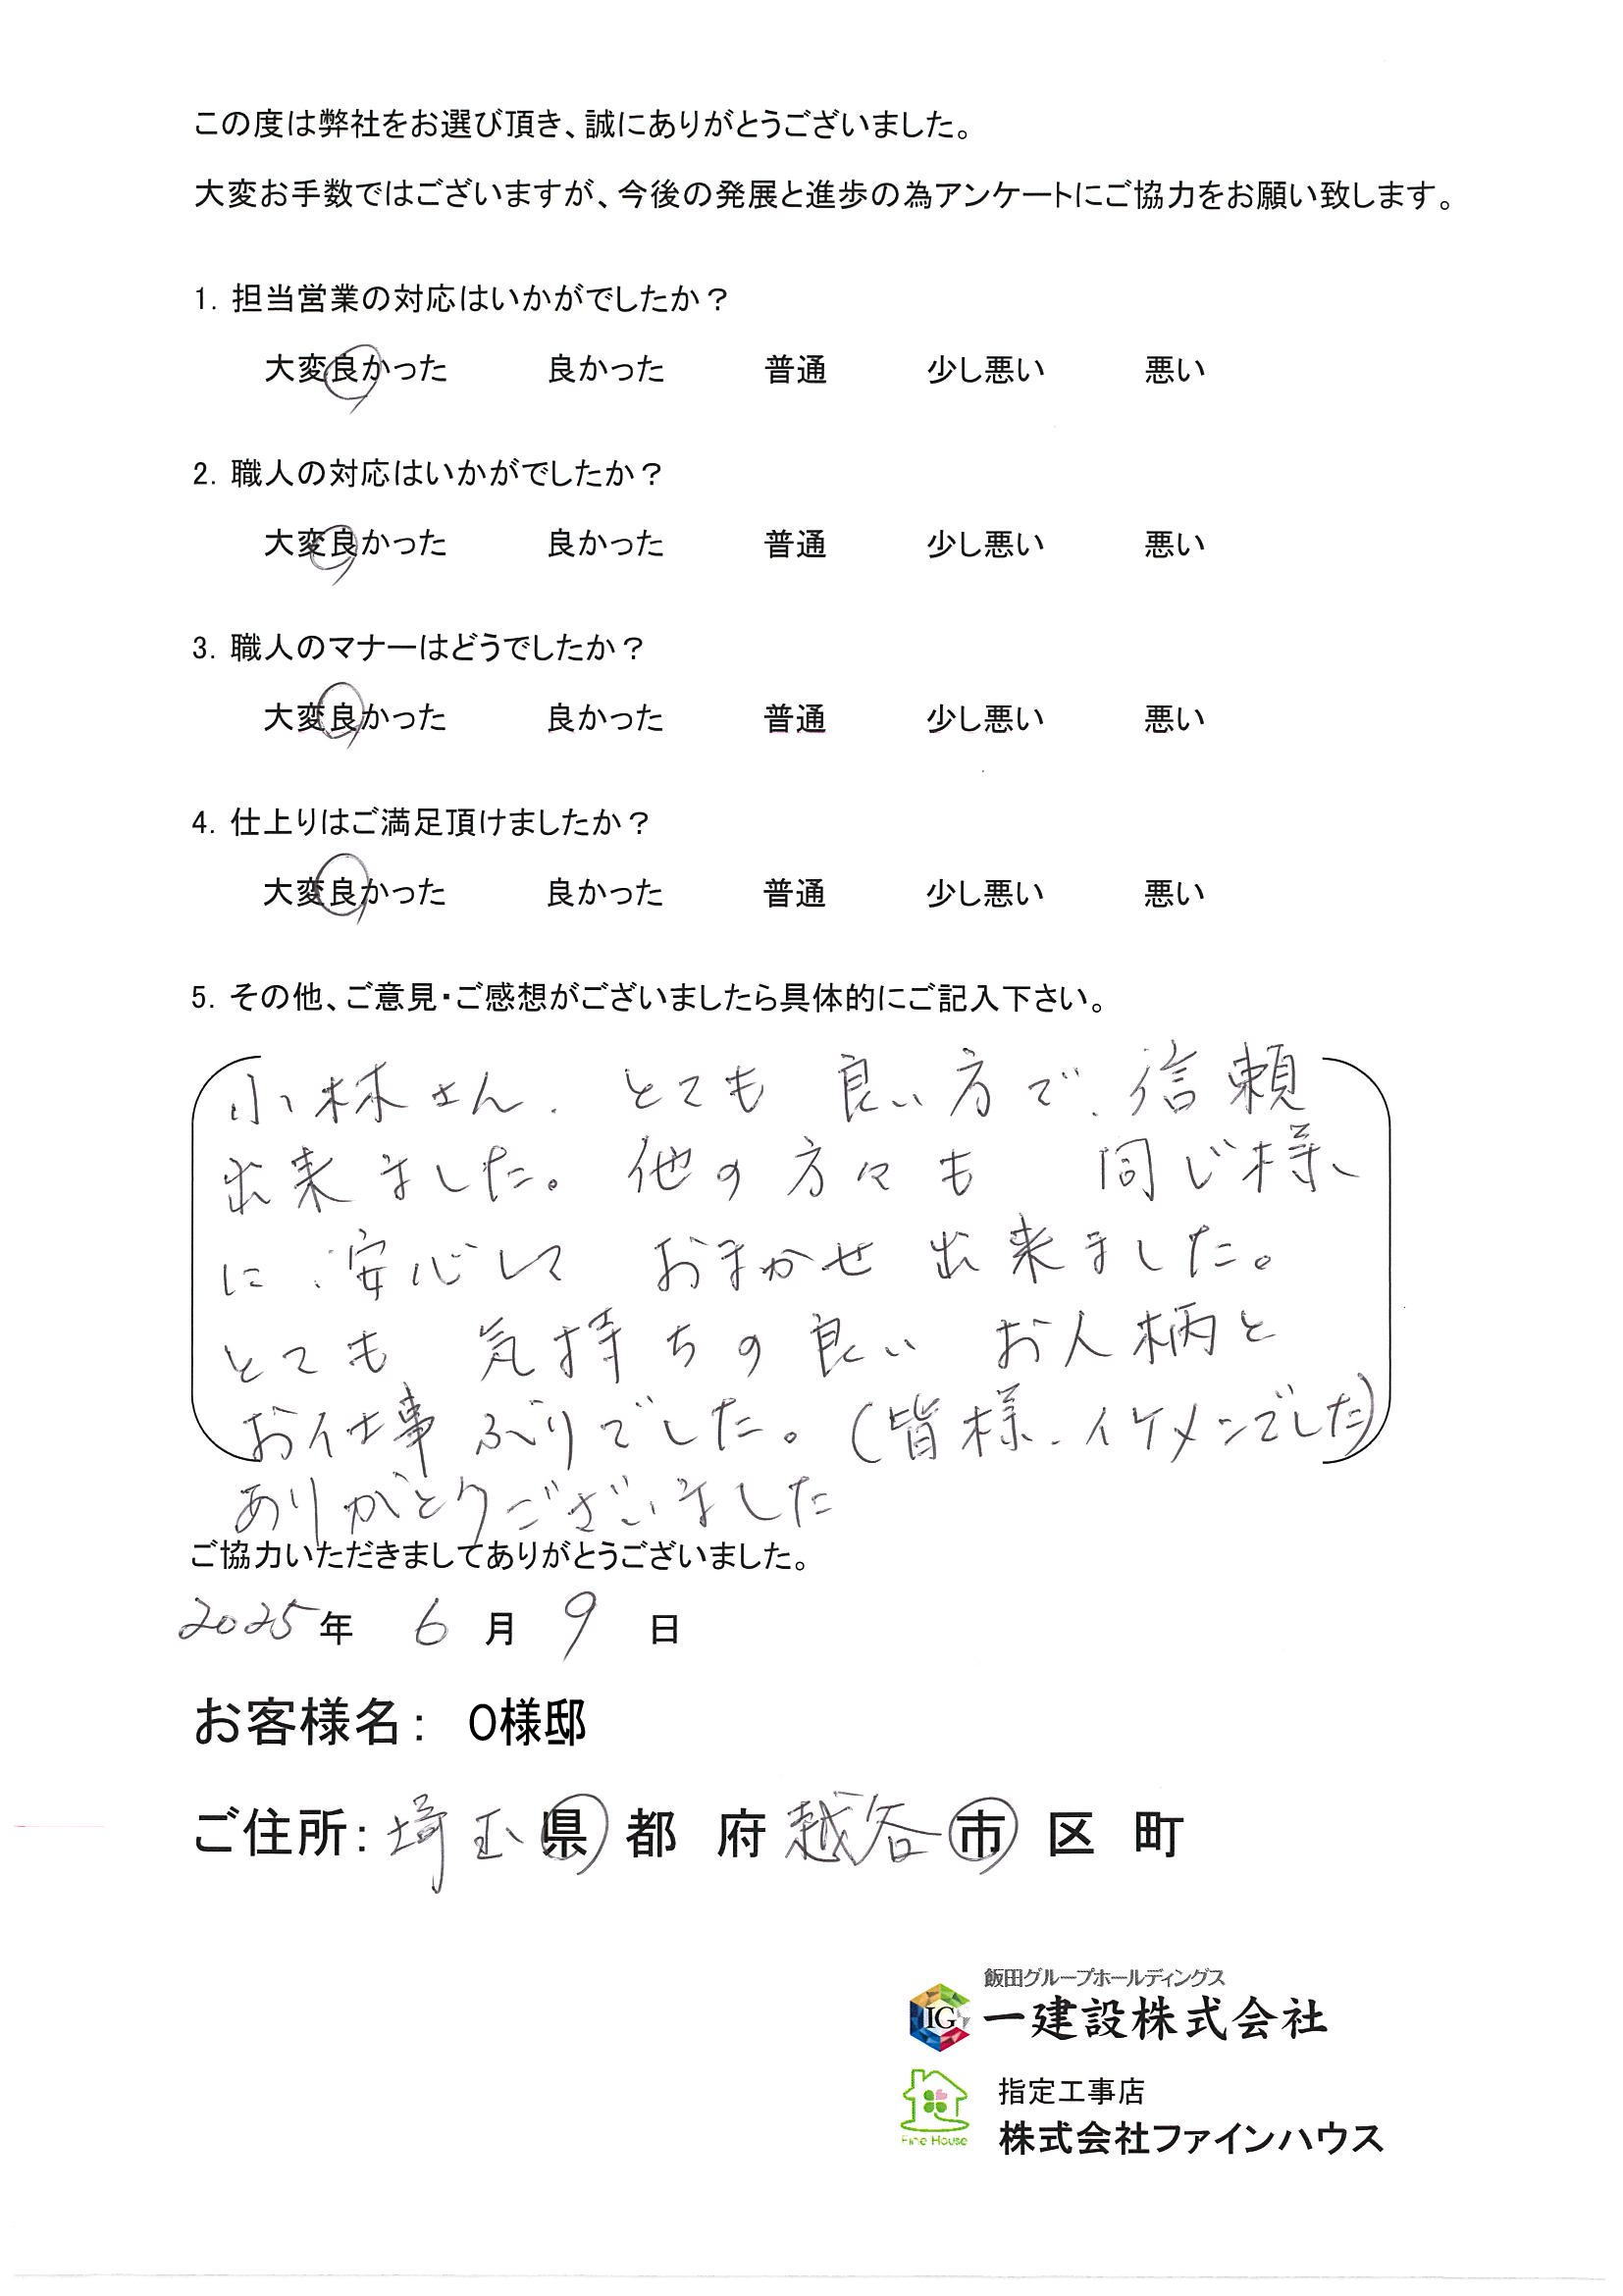 この度は弊社をお選び頂き、誠にありがとうございました。
大変お手数ではございますが、今後の発展と進歩の為アンケートにご協力をお願い致します。
1. 担当営業の対応はいかがでしたか？
大変良かった 良かった 普通 少し悪い 悪い
2. 職人の対応はいかがでしたか？
大変良かった 良かった 普通 少し悪い 悪い
3. 職人のマナーはどうでしたか？
大変良かった 良かった 普通 少し悪い 悪い
4. 仕上りはご満足頂けましたか？
大変良かった 良かった 普通 少し悪い 悪い
5. その他、ご意見・ご感想がございましたら具体的にご記入下さい。
小林さん、とても 良い方で、信頼
出来ました。他の方々も 同じ様
に、安心して おまかせ 出来ました。
とても 気持ちの良い お人柄と
お仕事ぶりでした。(皆様、イケメンでした)
ありがとうございました
ご協力いただきましてありがとうございました。
2025年 6月 9日
お客様名： O様邸
ご住所：埼玉県 都 府 越谷市 区 町
飯田グループホールディングス
IG 一建設株式会社
指定工事店
Fine House 株式会社ファインハウス